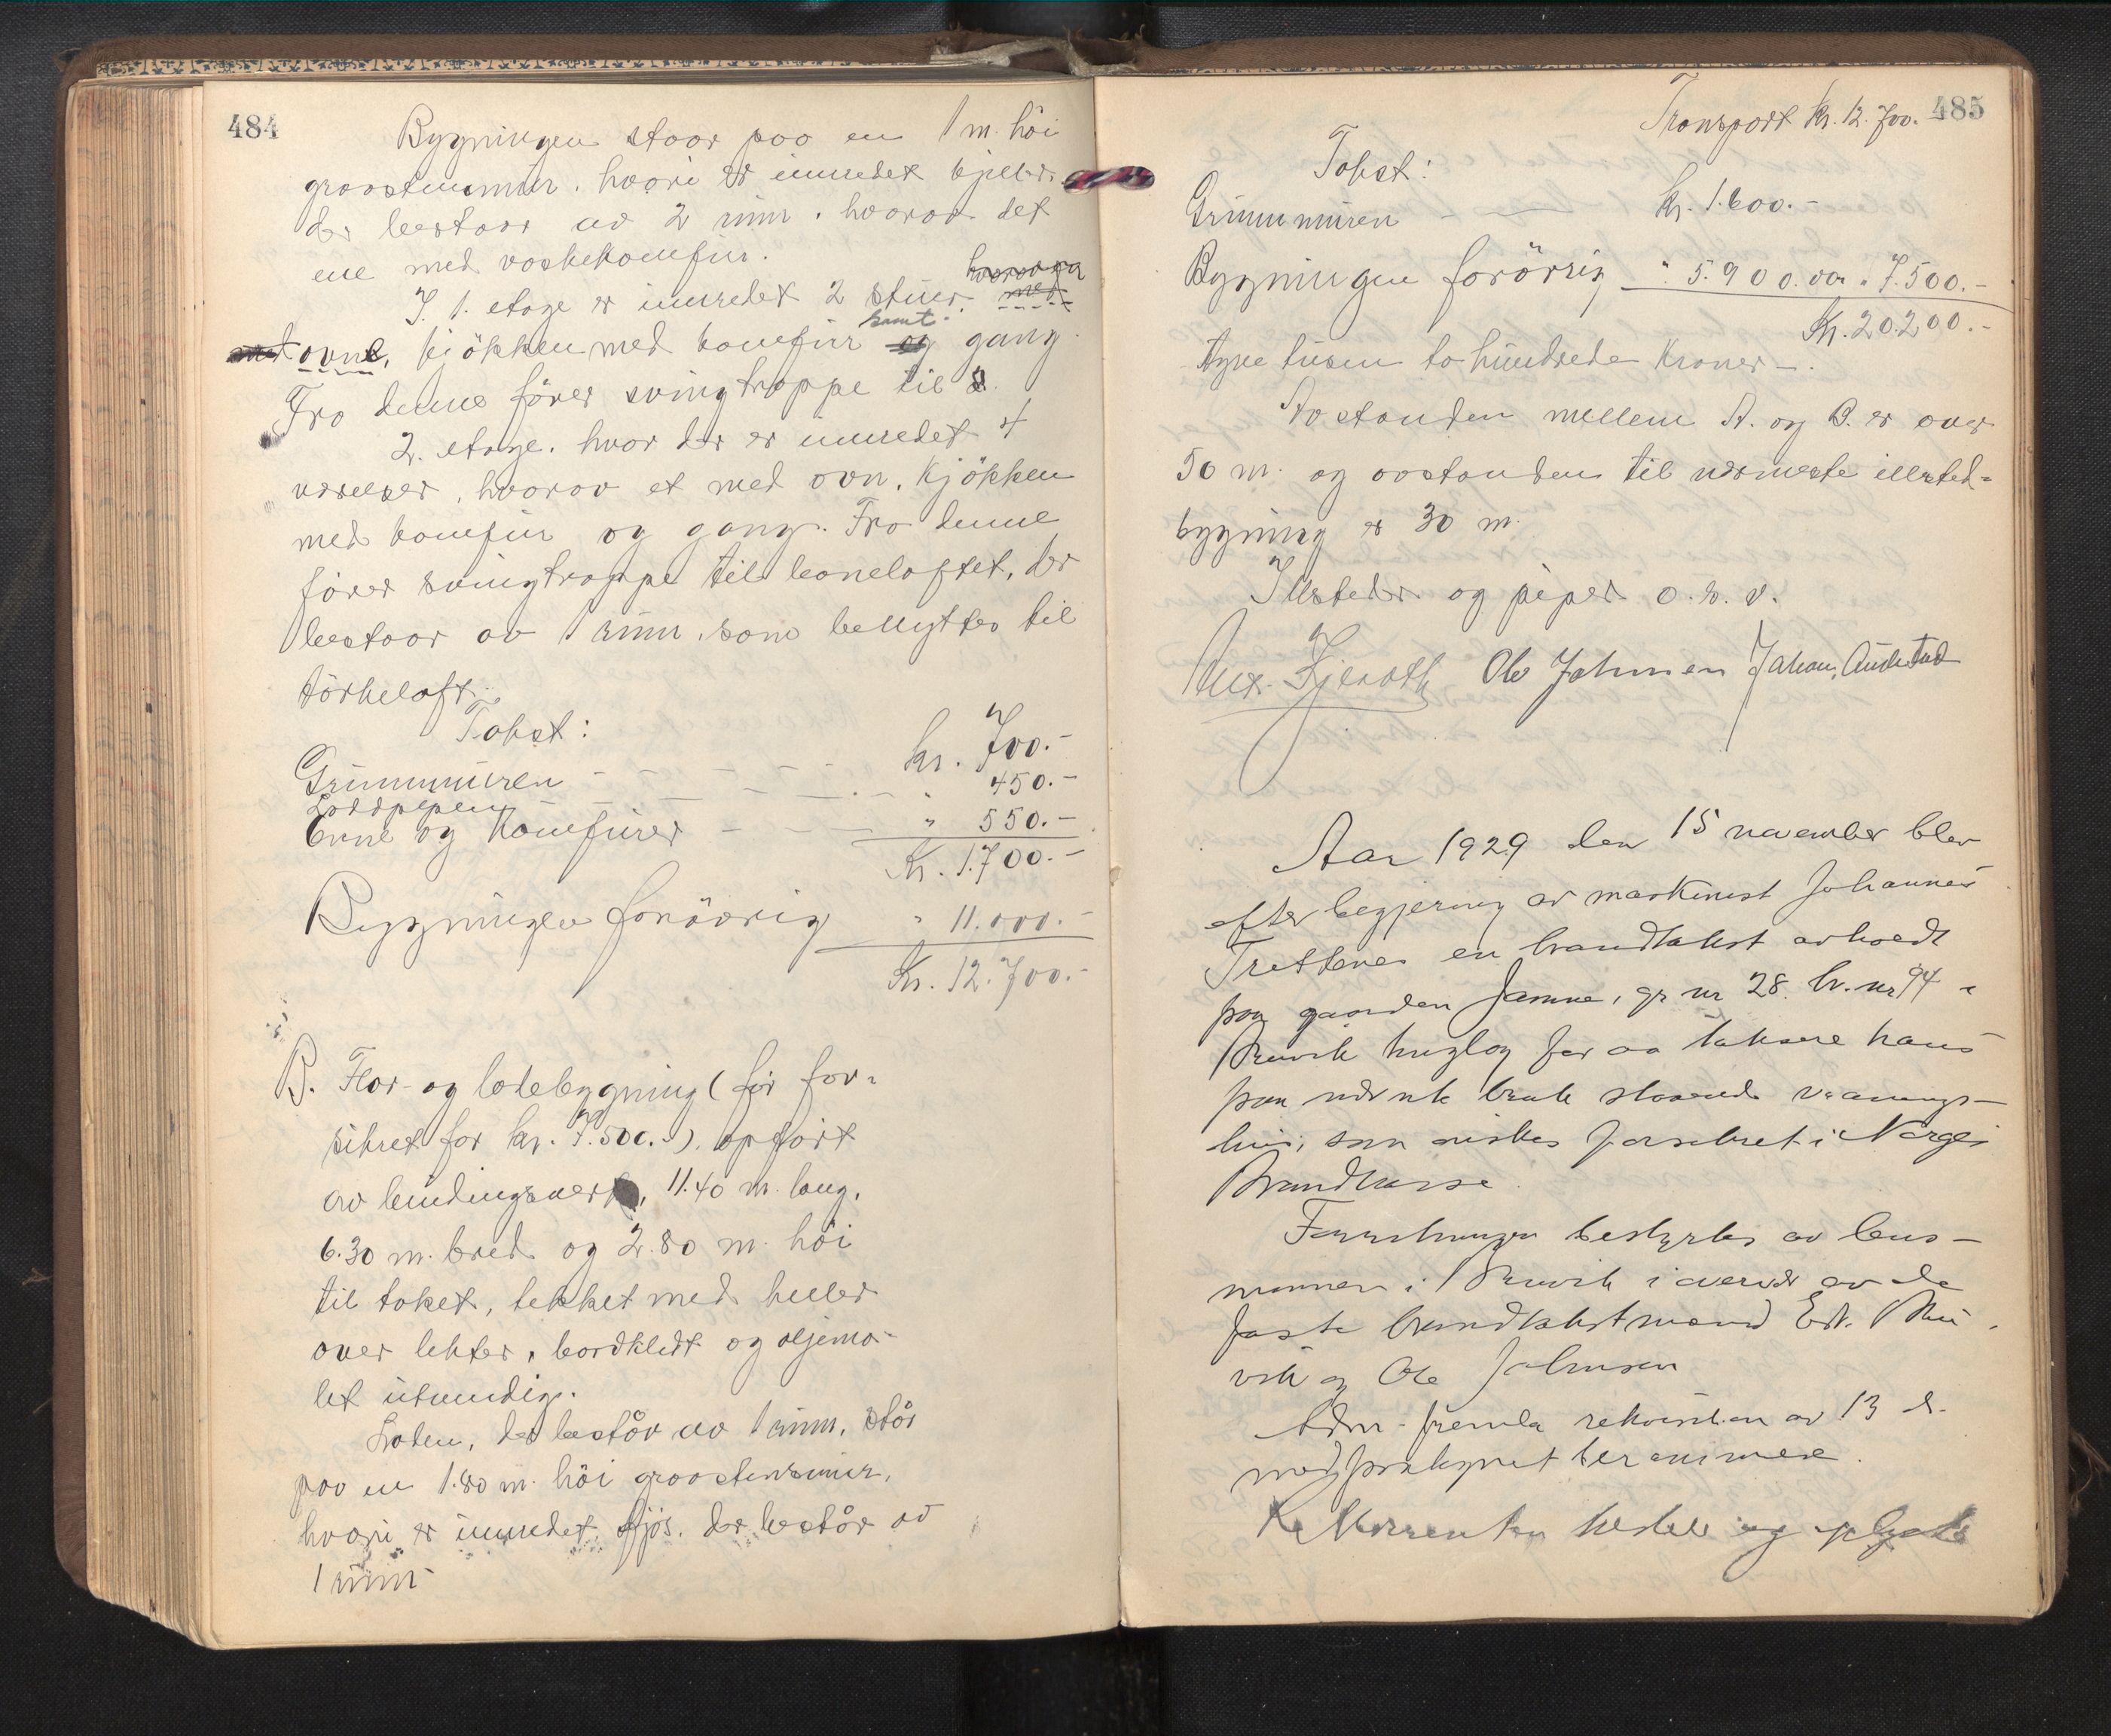 484
Bygningen staar paa en 1 m. höi
graastensmur, hvori er innredet kjeller,
der bestaar av 2 rum, hvorav det
ene med vaskekomfur.
I 1. etage er innredet 2 stuer,
ovne, kjökken med komfur samt gang.
Fra denne förer svingtrappe til
2. etage, hvor der er innredet 4
værelser, hvorav et med ovn, kjökken
med komfur og gang. Fra denne
förer svingtrappe til haneloftet, der
bestaar av 1 rum, som benyttes til
törkeloft.
Takst:
Grunnmuren - - - - - kr. 700.-
Loddpipen - - - - " 450.-
Ovne og Komfurer - - " 550.-
Kr. 1.700.-
Bygningen forövrig " 11.000.-
Kr. 12.700.-
B. Flor- og lödebygning (för for-
sikret for kr. 7.500.-), opfört
av bindingsverk, 11.40 m. lang,
6.30 m. bred og 2.80 m. höi
til taket, tekket med heller
over lekter, bordklædt og oljema-
let utvendig.
Loden, der består av 1 rum, står
paa en 1.80 m. höi graastensmur,
hvori er innredet fjös, der består av
1 rum
485
Transport kr. 12.700.
Takst:
Grunnmuren - — kr. 1.600.-
Bygningen forövrig " 5.900.00 " 7.500.-
Kr. 20.200.-
tyve tusen to hundrede Kroner -.
Avstanden mellem A. og B. er over
50 m. og avstanden til nærmeste illsted-
bygning er 30 m.
Illsteder og piper o. s. v.
Ole Johnsen Johan Aadnstad
Aar 1929 den 15 november blev
efter begjæring av maskinist Johannes
Trettenes en brandtakst avholdt
paa gaarden Jamne, gr nr 28. br. nr 94 i
Bruvik tinglag for aa taksere hans
paa nævnte bruk staaende vaanings-
hus, som önskes forsikret i Norges
Brandkasse.
Forretningen bestyrtes av lens-
mannen i Bruvik i overvær av de
faste brandtakstmænd Edv. Bru-
vik og Ole Johnsen
Adm. fremla rekvisition av 13 ds.
med paategnet beramelse.